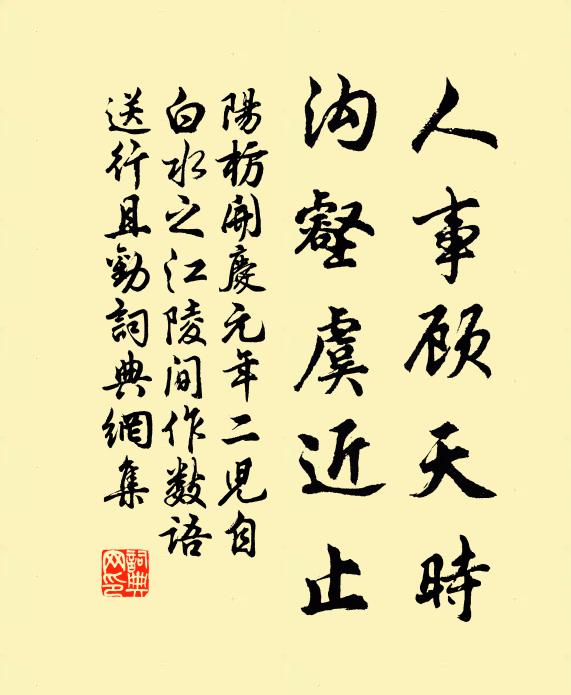 人事顾天時
沟壑虞近止
陽枋開慶元年二児自
白水之江陵间作数語
送行且勸詞典網集
詞典网印